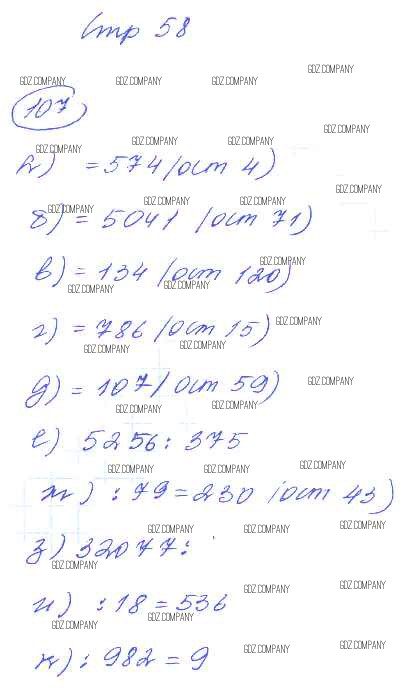 Стр 58
GDZ.COMPANY GDZ.COMPANY GDZ.COMPANY GDZ.COMPANY
107
GDZ.COMPANY GDZ.COMPANY GDZ.COMPANY GDZ.COMPANY
а) = 574 (ост 4)
GDZ.COMPANY GDZ.COMPANY GDZ.COMPANY GDZ.COMPANY
б) = 5041 (ост 71)
в) = 134 (ост 120)
GDZ.COMPANY GDZ.COMPANY GDZ.COMPANY
г) = 786 (ост 15)
GDZ.COMPANY GDZ.COMPANY GDZ.COMPANY
д) = 107 (ост 59)
GDZ.COMPANY GDZ.COMPANY GDZ.COMPANY
е) 5256 : 375
GDZ.COMPANY GDZ.COMPANY GDZ.COMPANY
ж) : 79 = 230 (ост 43)
GDZ.COMPANY GDZ.COMPANY GDZ.COMPANY
з) 32077 :
GDZ.COMPANY
и) : 18 = 536
GDZ.COMPANY GDZ.COMPANY GDZ.COMPANY
к) : 982 = 9
GDZ.COMPANY GDZ.COMPANY GDZ.COMPANY